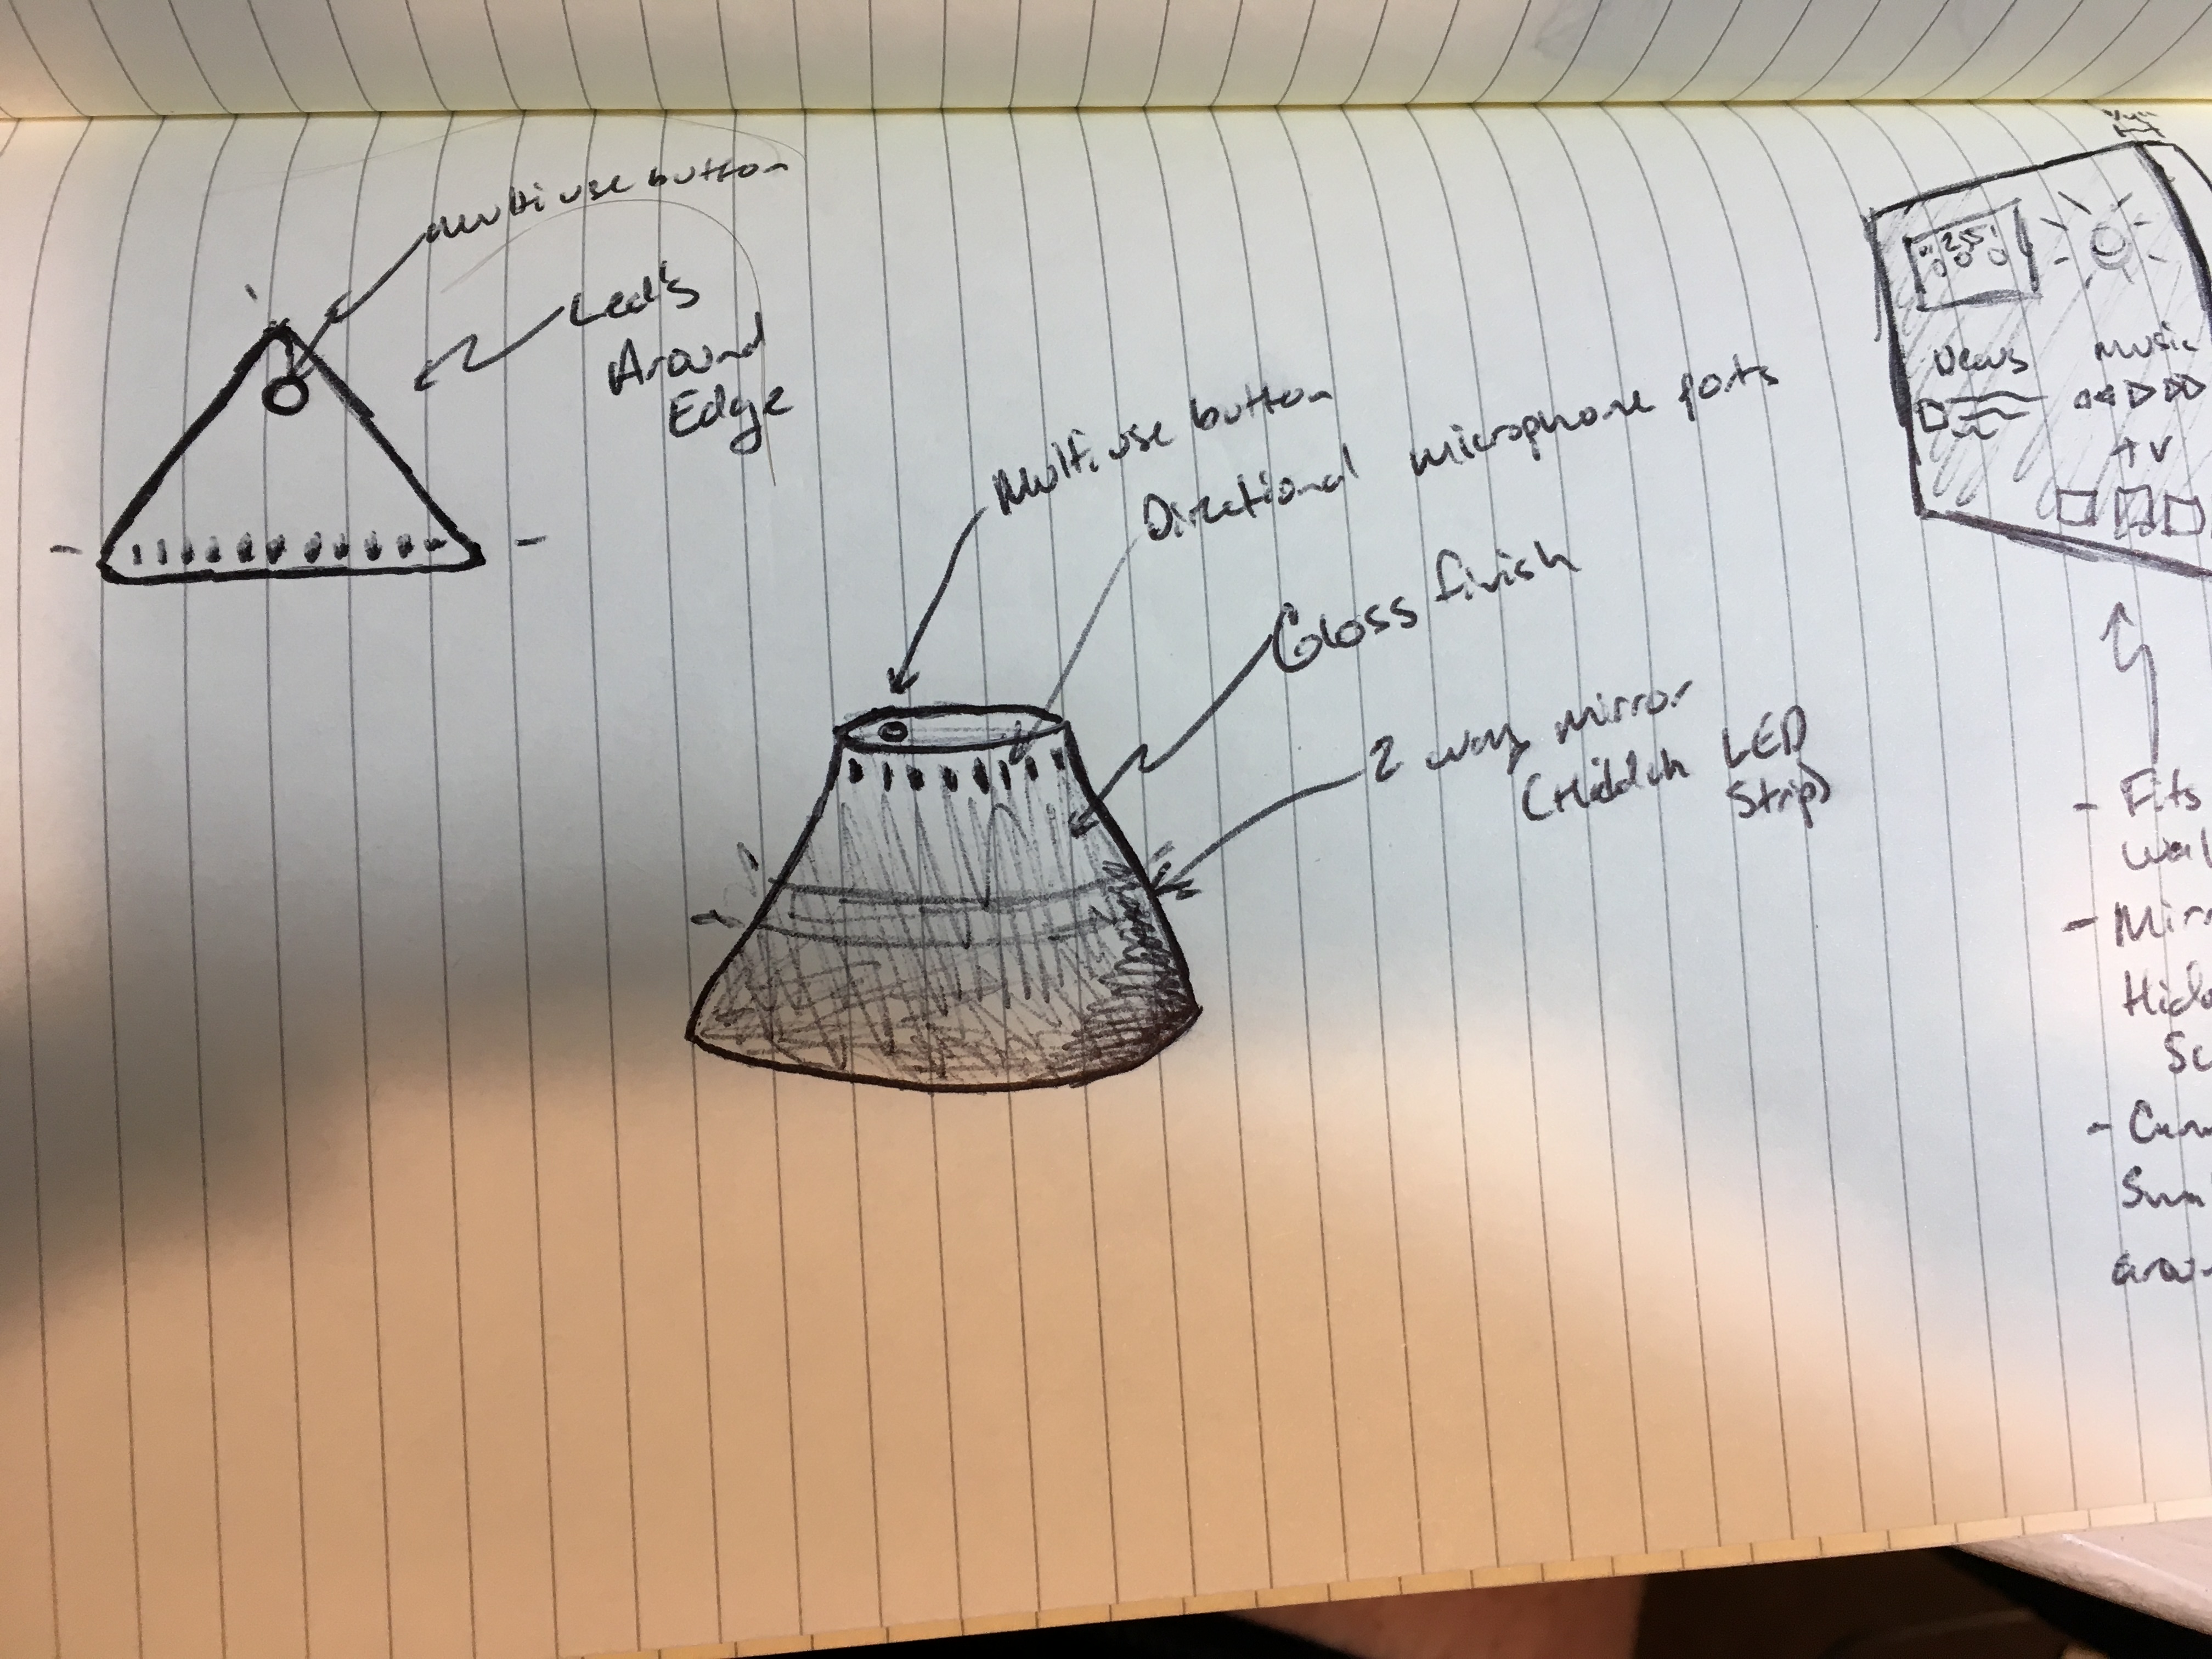 Multi use button
Leds
Around
Edge
Multi use button
Directional microphone ports
Gloss finish
2 way mirror
(Hidden LED
Strip)
News
Music
- Fits
- Mirr